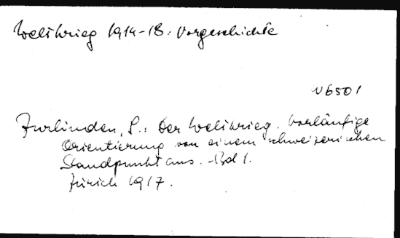 Weltkrieg 1914-18: Vorgeschichte
V6501
Zurlinden, S.: Der Weltkrieg. Vorläufige
Orientierung von einem schweizerischen
Standpunkt aus. - Bd 1.
Zürich 1917.